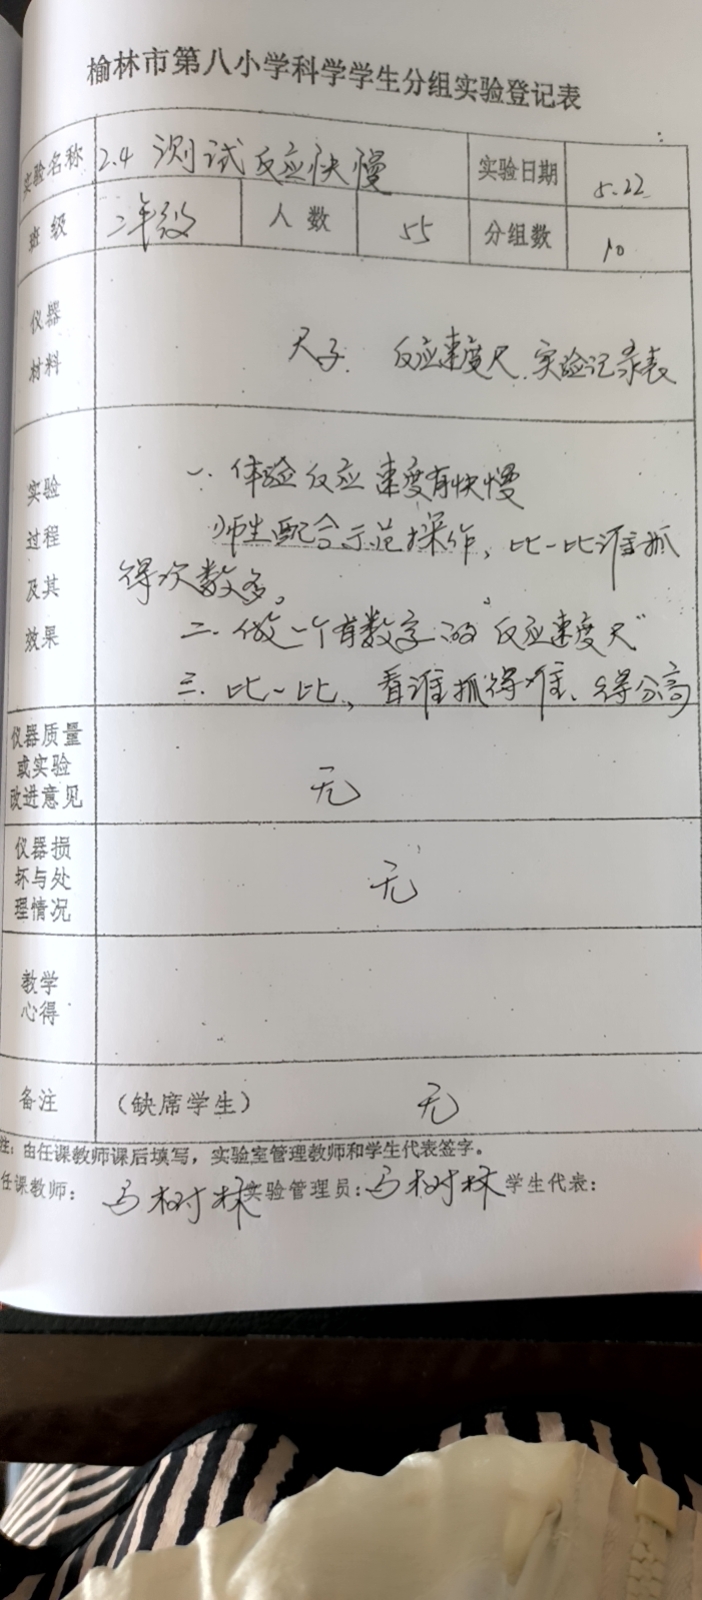 榆林市第八小学科学学生分组实验登记表
实验名称 2.4 测试反应快慢 实验日期 5.22
班级 二年级 人数 55 分组数 10
仪器材料 尺子、反应速度尺、实验记录表
实验过程及其效果 一、体验反应速度有快慢
师生配合示范操作，比一比谁抓
得次数多。
二、做一个有数字的“反应速度尺”
三、比一比，看谁抓得准、得分高
仪器质量或实验改进意见 无
仪器损坏与处理情况 无
教学心得
备注 （缺席学生） 无
注：由任课教师课后填写，实验室管理教师和学生代表签字。
任课教师：马树林 实验管理员：马树林 学生代表：